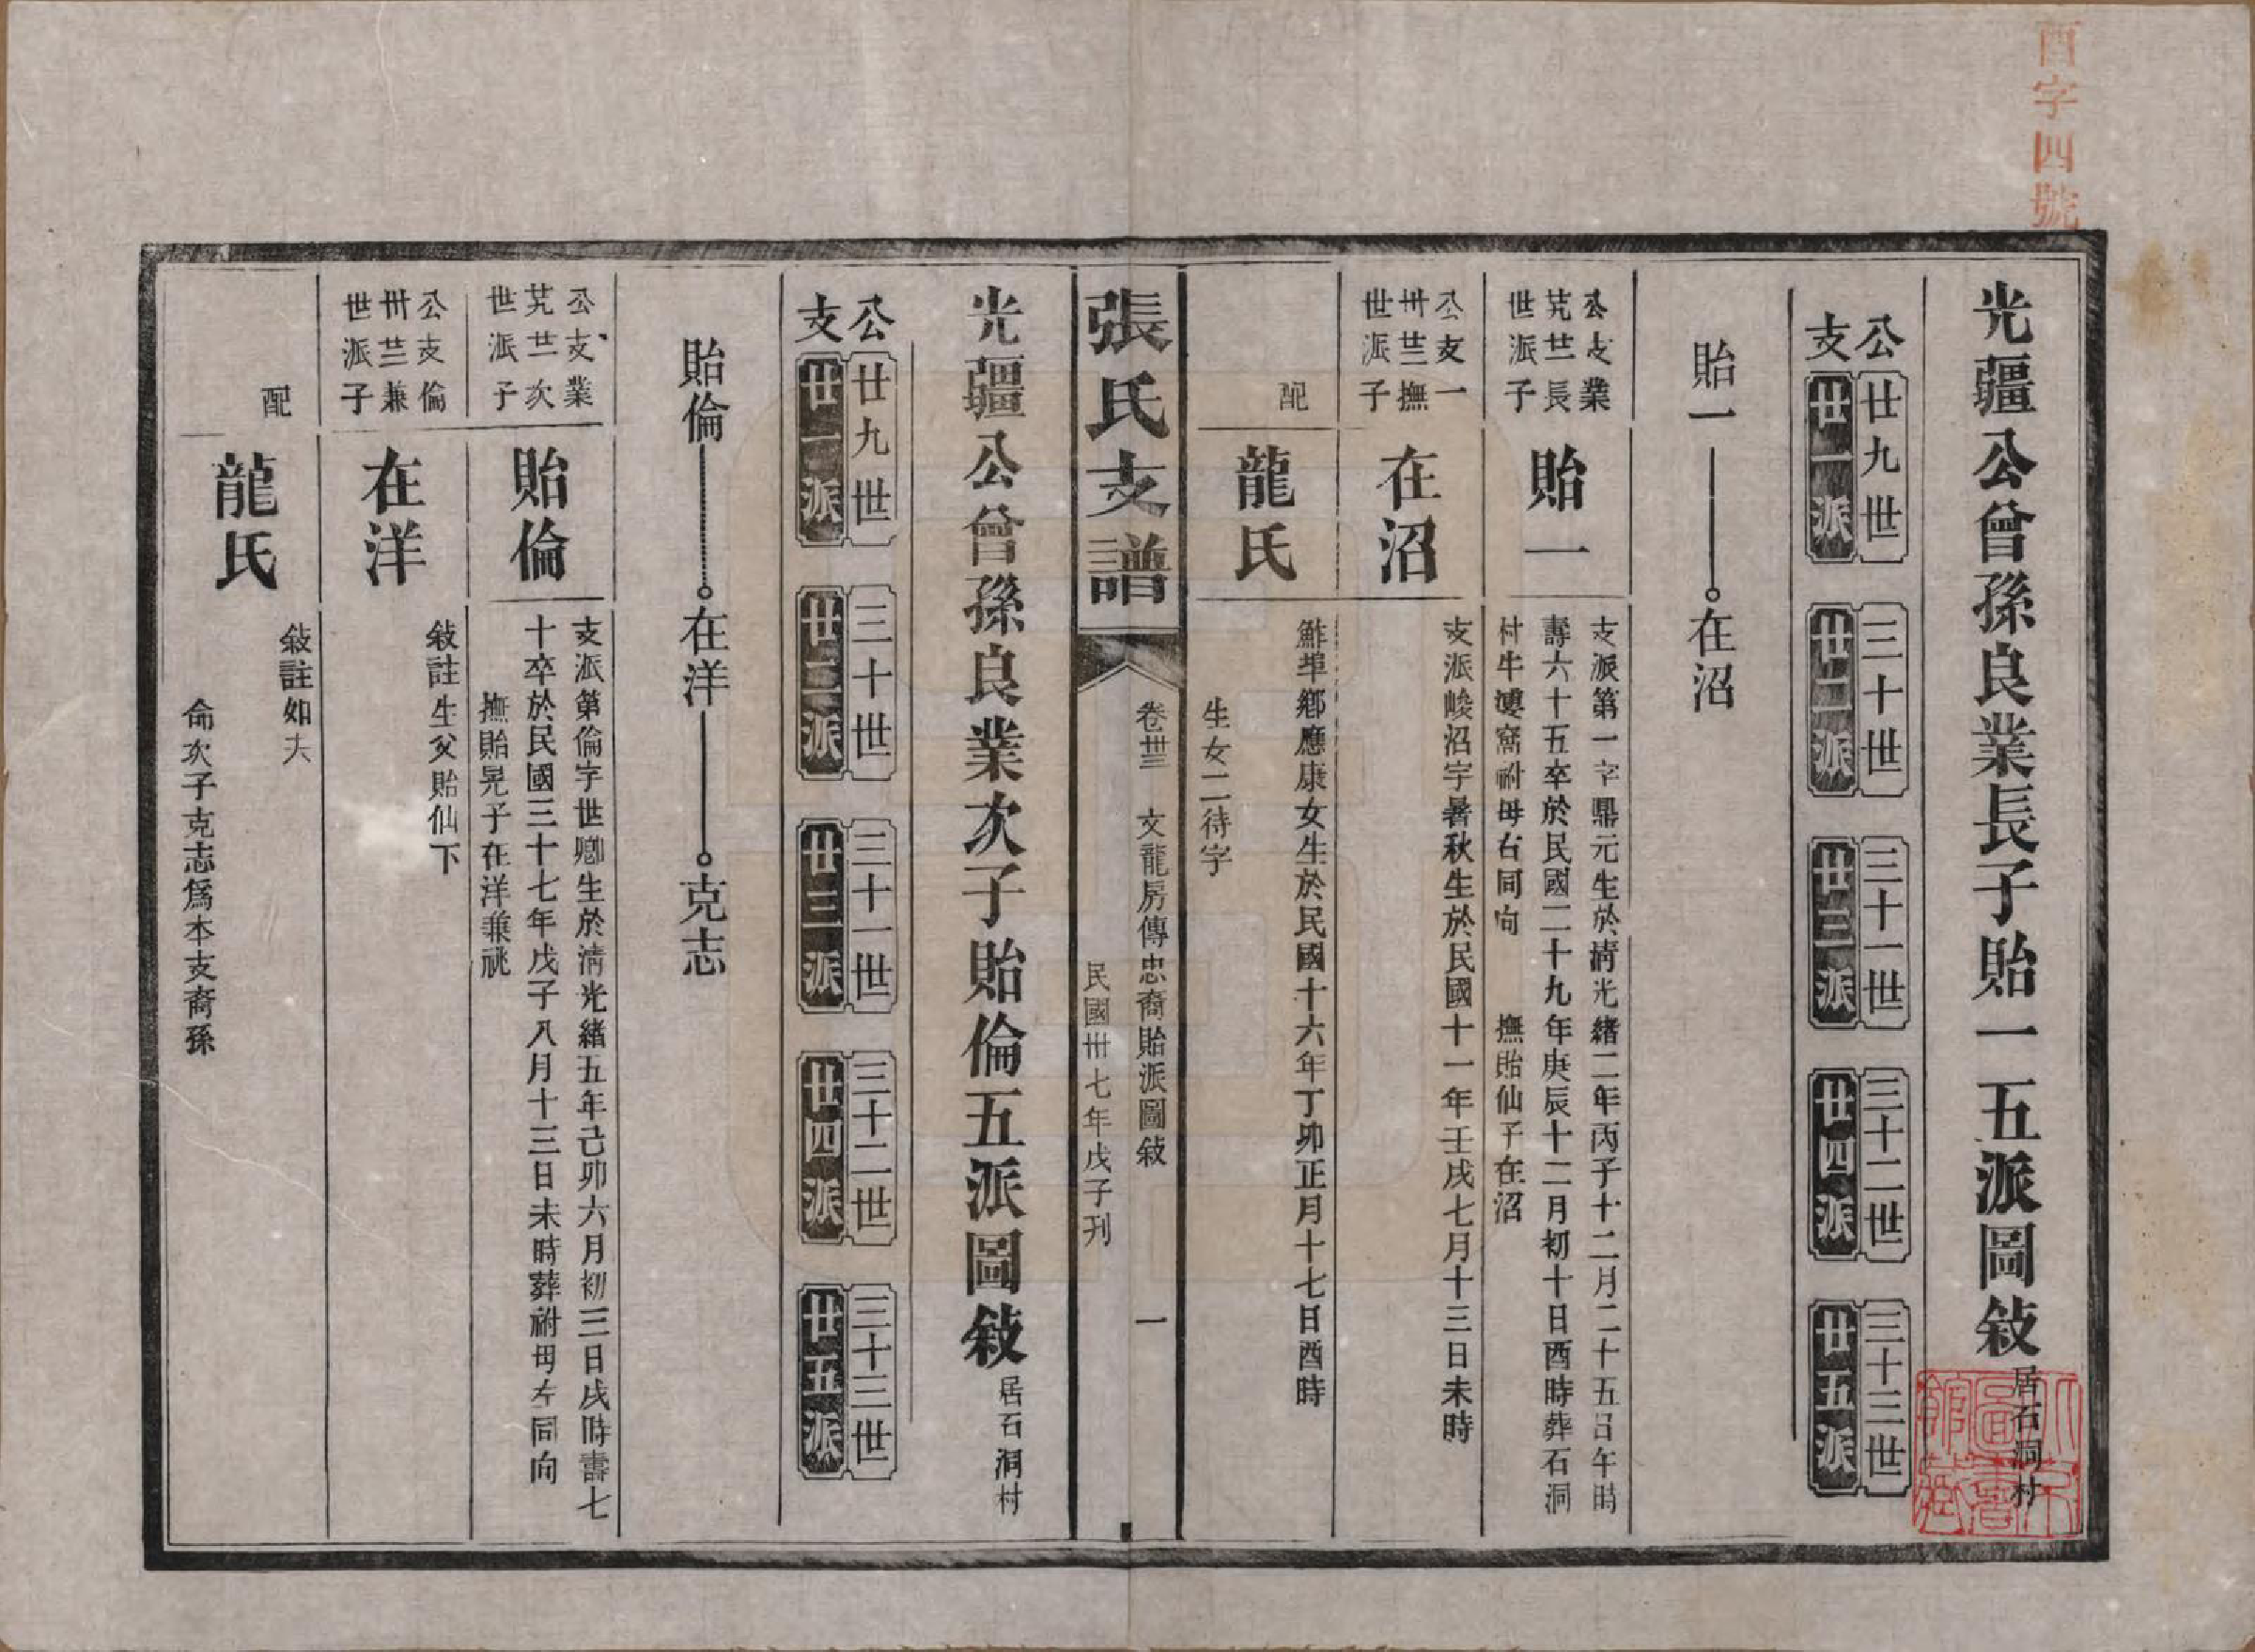 酉字四號
光疆公曾孫良業長子貽一五派圖敍 居石洞村
公支
廿九世 廿一派
三十世 廿二派
三十一世 廿三派
三十二世 廿四派
三十三世 廿五派
貽一 在沼
公支業
艽廿長
世派子
貽一
支派第一字鼎元生於清光緒二年丙子十二月二十五日午時
壽六十五卒於民國二十九年庚辰十二月初十日酉時葬石洞
村牛塿窩祔母右同向 撫貽仙子在沼
公支一
卅廿撫
世派子
在沼
支派峻沼字暑秋生於民國十一年壬戌七月十三日未時
配
龍氏
鮓埠鄉應康女生於民國十六年丁卯正月十七日酉時
生女二待字
張氏支譜
卷卅 文龍房傳忠裔貽派圖敍 一
民國卅七年戊子刊
光疆公曾孫良業次子貽倫五派圖敍 居石洞村
公支
廿九世 廿一派
三十世 廿二派
三十一世 廿三派
三十二世 廿四派
三十三世 廿五派
貽倫 在洋 克志
公支業
艽廿次
世派子
貽倫
支派第倫字世卿生於清光緒五年己卯六月初三日戌時壽七
十卒於民國三十七年戊子八月十三日未時葬祔母左同向
撫貽晃子在洋兼祧
公支倫
卅廿兼
世派子
在洋
敍註生父貽仙下
配
龍氏
敍註如夫
侖次子克志爲本支裔孫